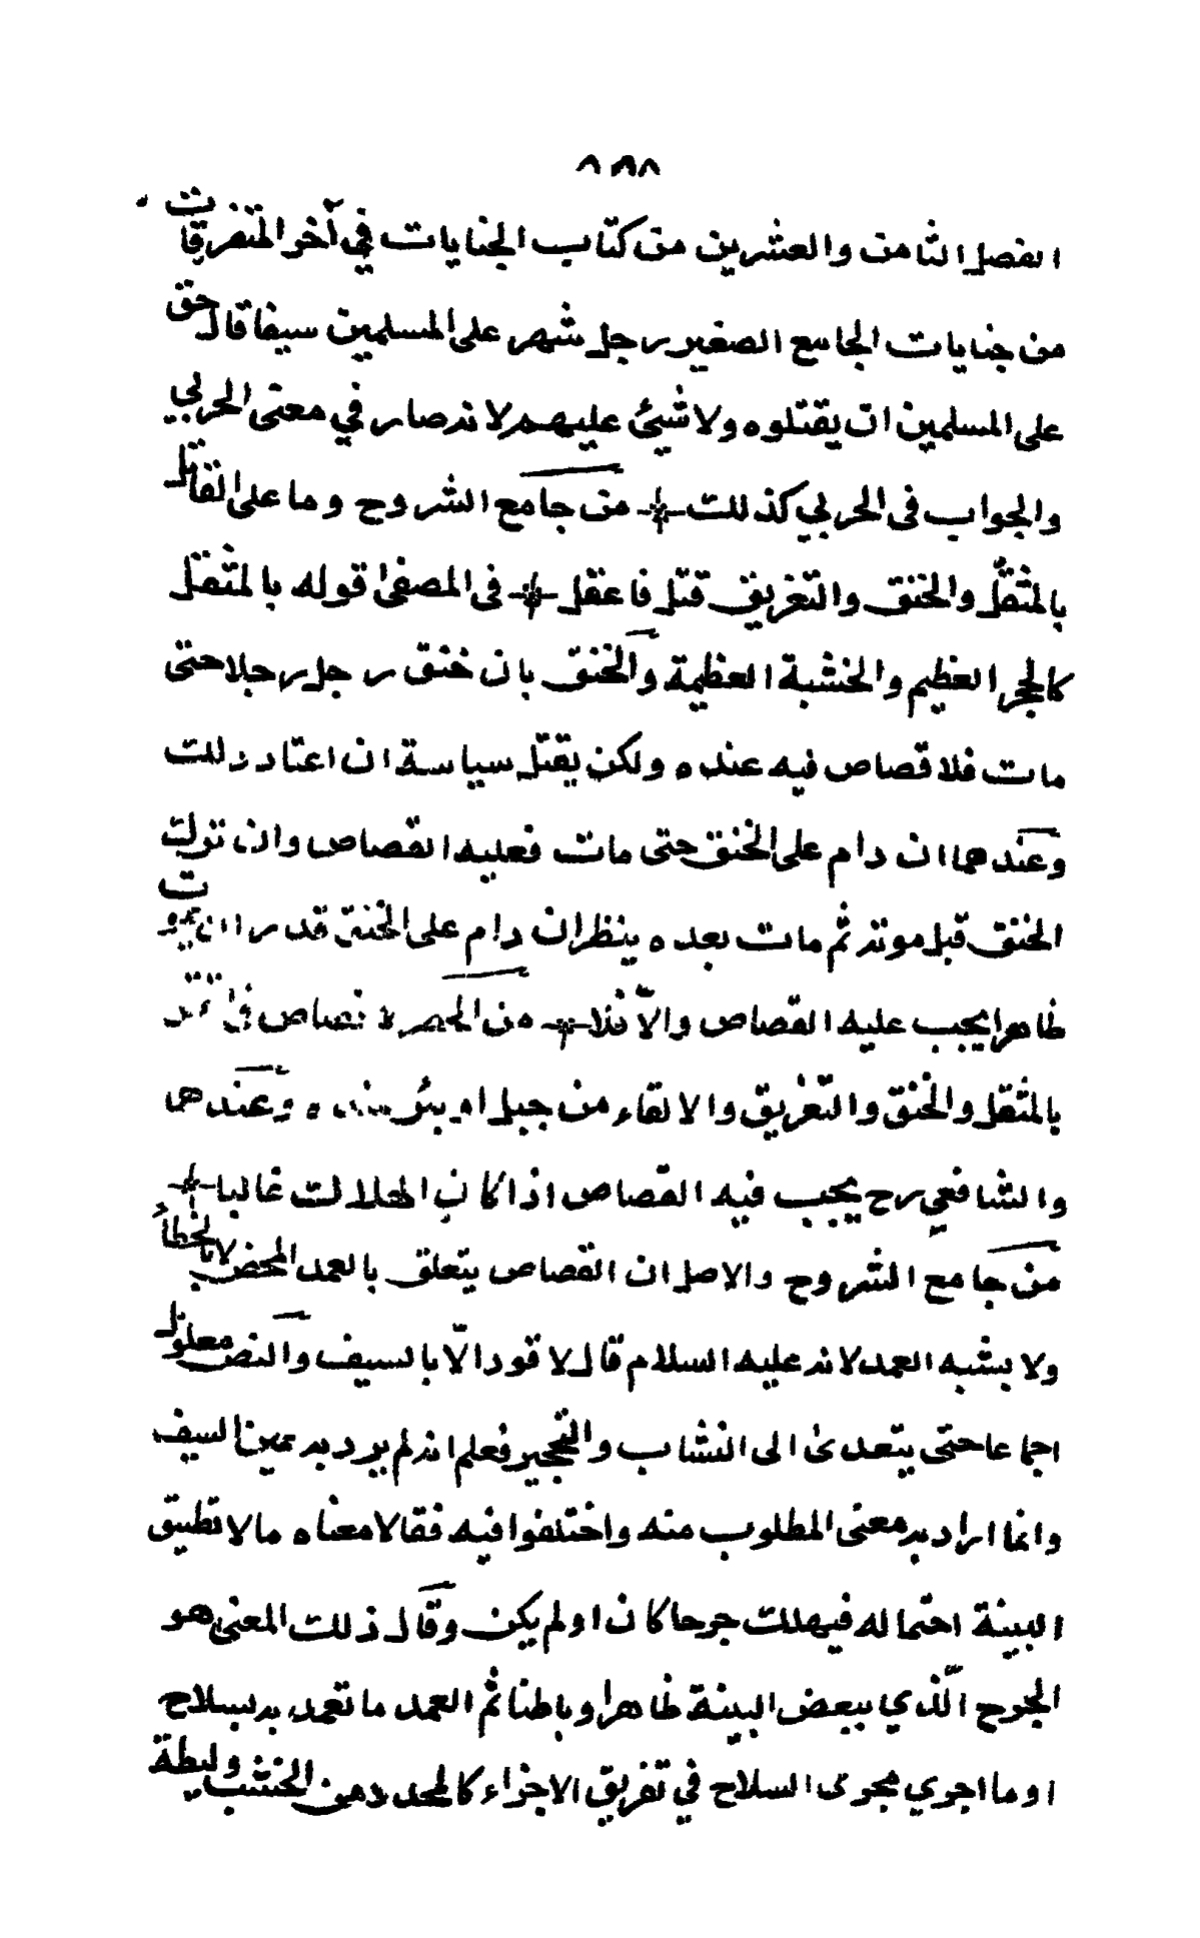 ٨٩٨
الفصل الثامن والعشرين من كتاب الجنايات في آخر المتفرقات
من جنايات الجامع الصغير رجل شهر على المسلمين سيفا قال حق
على المسلمين ان يقتلوه ولا شيئ عليهم لانه صار في معنى الحربي
والجواب فى الحربي كذلك من جامع الشروح وما على القاتل
بالمثقل والخنق والتغريق قتل فاعقل فى المصفى قوله بالمثقل
كالحجر العظيم والخشبة العظيمة والخنق بان خنق رجل رجلا حتى
مات فلا قصاص فيه عنده ولكن يقتل سياسة ان اعتاد ذلك
وعندهما ان دام على الخنق حتى مات فعليه القصاص وان ترك
الخنق قبل موته ثم مات بعده ينظر ان دام على الخنق قدر ان يموت
ظاهرا يجب عليه القصاص والّا فلا من الحصر لا قصاص فى
بالمثقل والخنق والتّغريق والالقاء من جبل او بئر عنده وعندهما
والشافعي رح يجب فيه القصاص اذا كان الهلاك غالبا
من جامع الشروح والاصل ان القصاص يتعلق بالعمد المحض لا بالخطأ
ولا يشبه العمد لانه عليه السلام قال لا قود الّا بالسيف والنص معلول
اجماعا حتى يتعدى الى النشاب والخنجير فعلم انه لم يرد به عين السيف
وانما اراد به معنى المطلوب منه واختلفوا فيه فقالا معناه ما لا تطيق
البينة احتماله فيهلك جرحا كان او لم يكن وقال ذلك المعنى هو
الجرح الّذي ببعض البينة ظاهرا وباطنا ثم العمد ما تعمد به بسلاح
او ما اجري مجرى السلاح في تفريق الاجزاء كالمحدد من الخشب وليطة